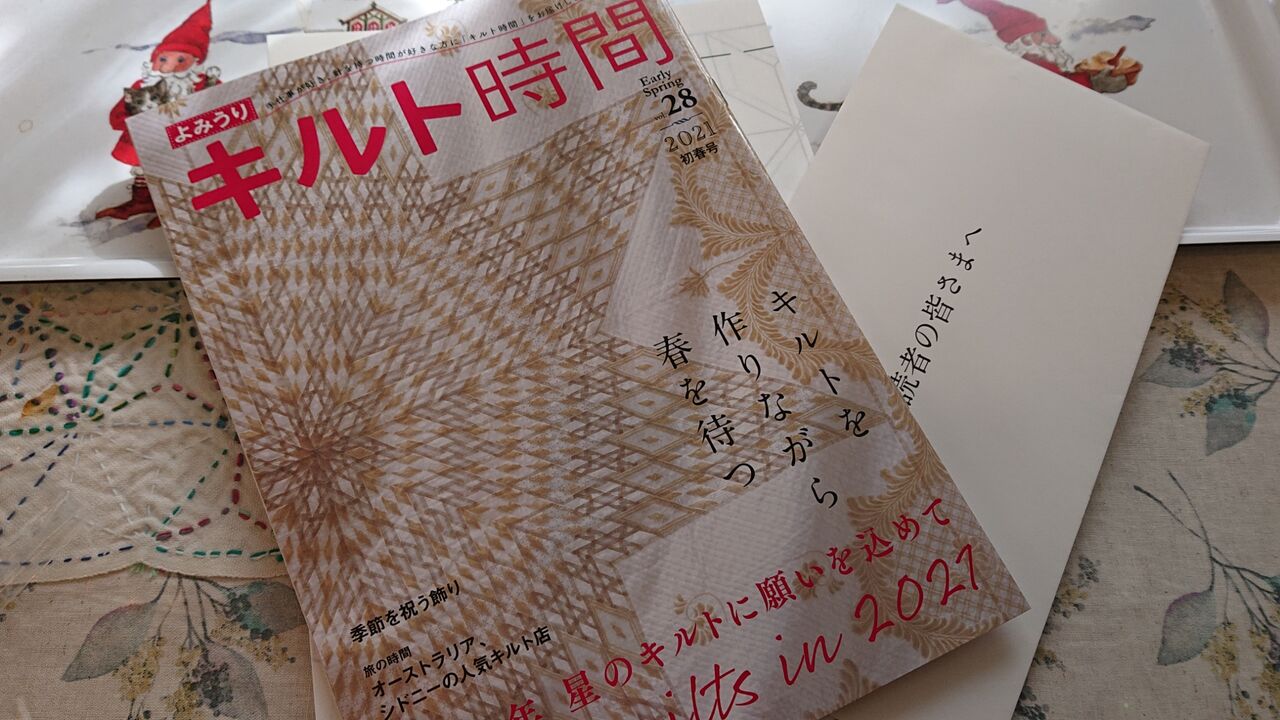 手仕事が好き、針を持つ時間が好きな方に「キルト時間」をお届けし
よみうり
キルト時間
Early
Spring
vol. 28
2021
初春号
キルトを
作りながら
春を待つ
季節を祝う飾り
旅の時間
オーストラリア、
シドニーの人気キルト店
年 星のキルトに願いを込めて
ilts in 2021
読者の皆さまへ